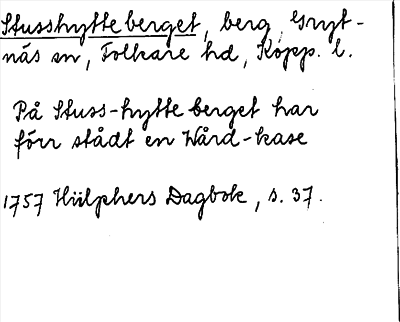 Stusshytteberget, berg, Gryt-
näs sn, Folkare hd, Kopp. l.
På Stuss-hytte berget har
förr stådt en Wård-kase
1757 Hülphers Dagbok, s. 37.